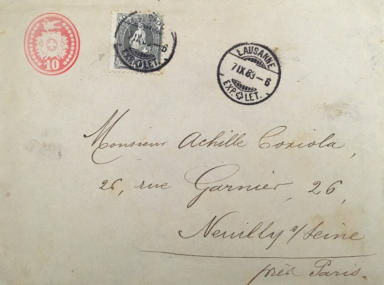 10
LAUSANNE
7 IX 83–6
EXP. LET.
Monsieur Achille Coziola,
26, rue Garnier, 26,
Neuilly s/Seine
près Paris.